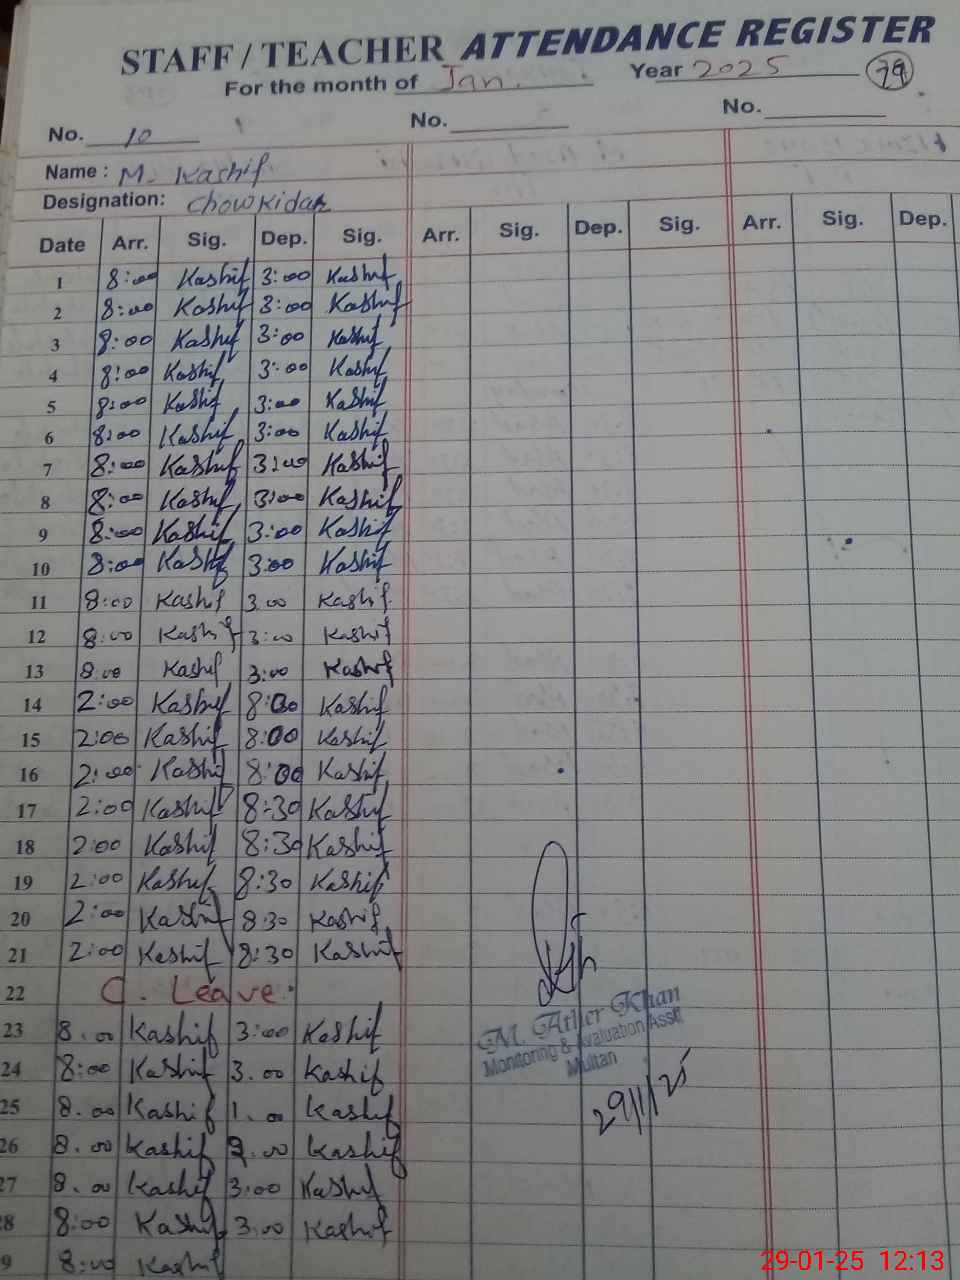 STAFF / TEACHER ATTENDANCE REGISTER
For the month of Jan. Year 2025 79
No. 10 No. No.
Name : M. Kashif
Designation: Chowkidar
Date Arr. Sig. Dep. Sig. Arr. Sig. Dep. Sig. Arr. Sig. Dep.
1 8:00 Kashif 3:00 Kashif
2 8:00 Kashif 3:00 Kashif
3 8:00 Kashif 3:00 Kashif
4 8:00 Kashif 3:00 Kashif
5 8:00 Kashif 3:00 Kashif
6 8:00 Kashif 3:00 Kashif
7 8:00 Kashif 3:00 Kashif
8 8:00 Kashif 3:00 Kashif
9 8:00 Kashif 3:00 Kashif
10 8:00 Kashif 3:00 Kashif
11 8:00 Kashif 3:00 Kashif
12 8:00 Kashif 3:00 Kashif
13 8:00 Kashif 3:00 Kashif
14 2:00 Kashif 8:00 Kashif
15 2:00 Kashif 8:00 Kashif
16 2:00 Kashif 8:00 Kashif
17 2:00 Kashif 8:30 Kashif
18 2:00 Kashif 8:30 Kashif
19 2:00 Kashif 8:30 Kashif
20 2:00 Kashif 8:30 Kashif
21 2:00 Kashif 8:30 Kashif
22 C. Leave
23 8.00 Kashif 3:00 Kashif
24 8:00 Kashif 3.00 Kashif
25 8.00 Kashif 1.00 Kashif
26 8.00 Kashif .00 Kashif
27 8.00 Kashif 3:00 Kashif
28 8:00 Kashif 3:00 Kashif
9 8:00 Kashif
M. Ather Khan
Monitoring & Evaluation Asstt
Multan
29/1/25
29-01-25 12:13